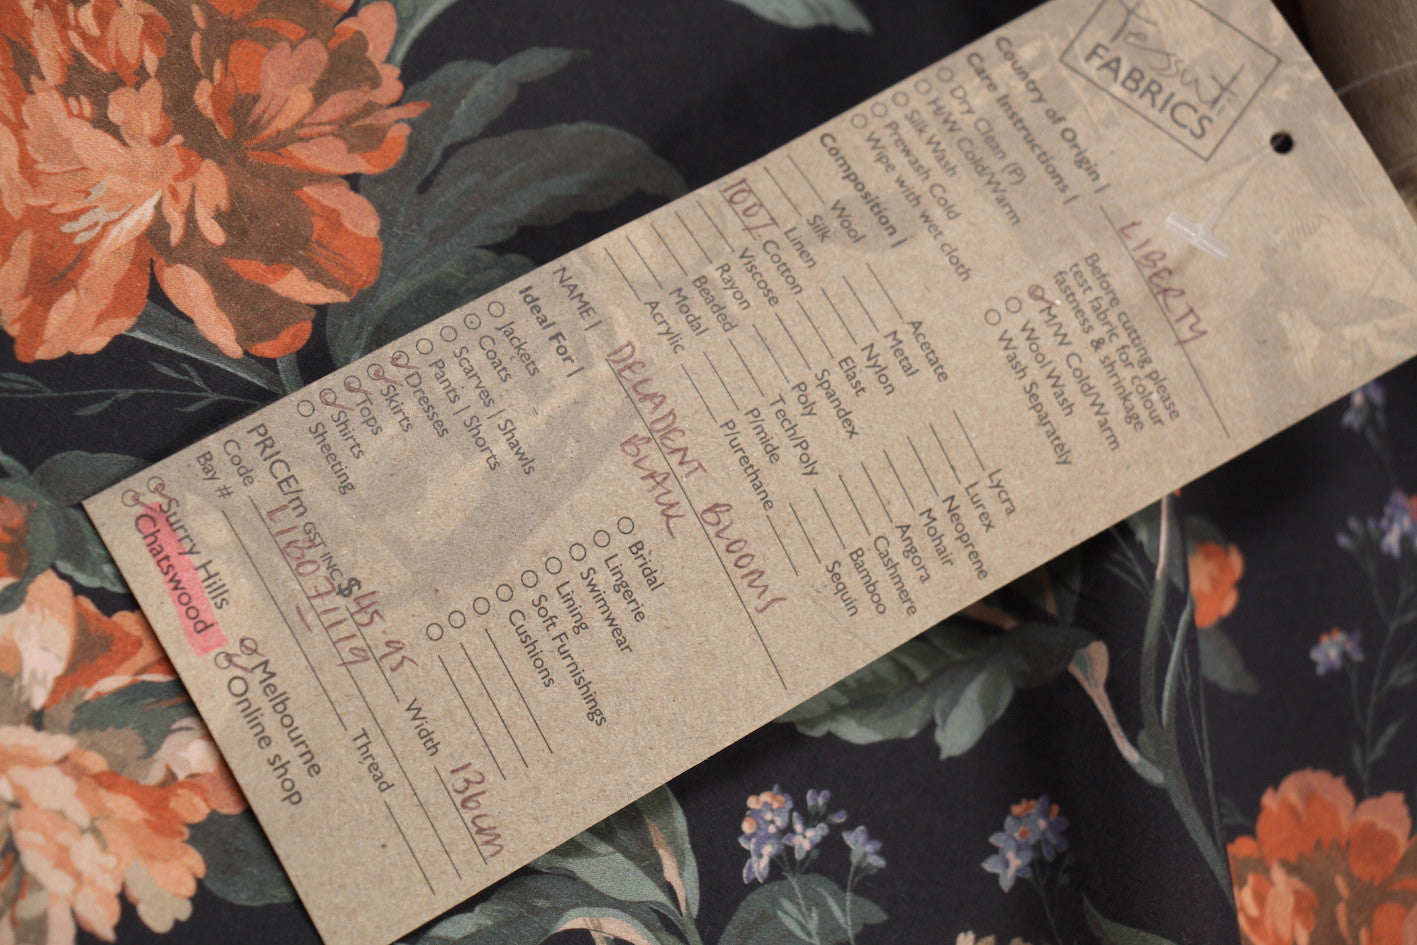 Tessuti
FABRICS
Country of Origin | LIBERTY
Care Instructions |
Dry Clean (P)
H/W Cold/Warm
Silk Wash
Prewash Cold
Wipe with wet cloth
Before cutting please
test fabric for colour
fastness & shrinkage
M/W Cold/Warm
Wool Wash
Wash Separately
Composition |
Wool
Silk
Linen
100% Cotton
Viscose
Rayon
Beaded
Modal
Acrylic
Acetate
Metal
Nylon
Elast
Spandex
Poly
Tech/Poly
P/mide
P/urethane
Lycra
Lurex
Neoprene
Mohair
Angora
Cashmere
Bamboo
Sequin
NAME | DECADENT BLOOMS
BLACK
Ideal For |
Jackets
Coats
Scarves | Shawls
Pants | Shorts
Dresses
Skirts
Tops
Shirts
Sheeting
Bridal
Lingerie
Swimwear
Lining
Soft Furnishings
Cushions
PRICE/m GST INC $45.95 Width 136cm
Code
Bay # Thread
Surry Hills
Chatswood
Melbourne
Online shop